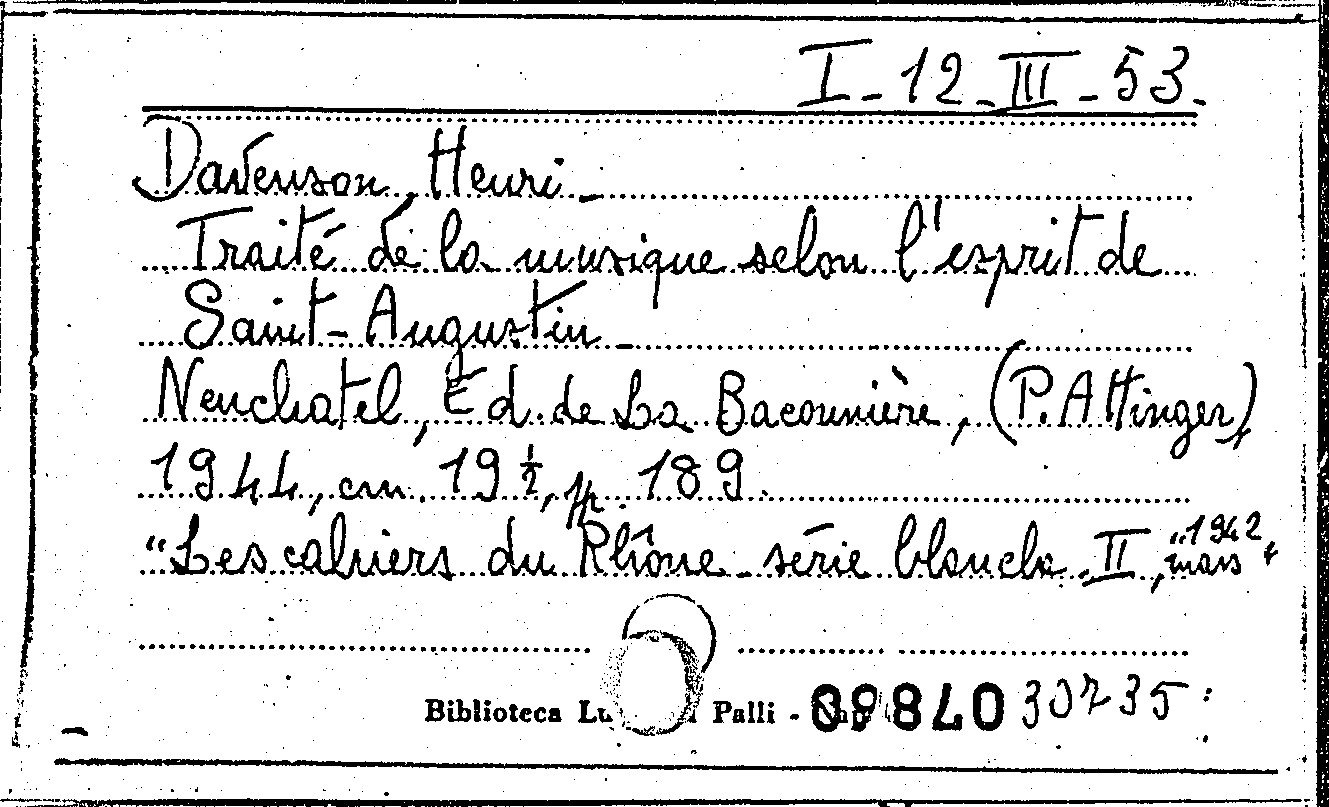 I-12-III-53.
Davenson, Henri -
Traité de la musique selon l'esprit de
Saint-Augustin -
Neuchatel, Ed. de La Baconnière, (P. Attinger)
1944, cm. 19 ½, pp. 189.
"Les cahiers du Rhône - série blanche II, mars 1942"
Biblioteca Palli -
098840 30735